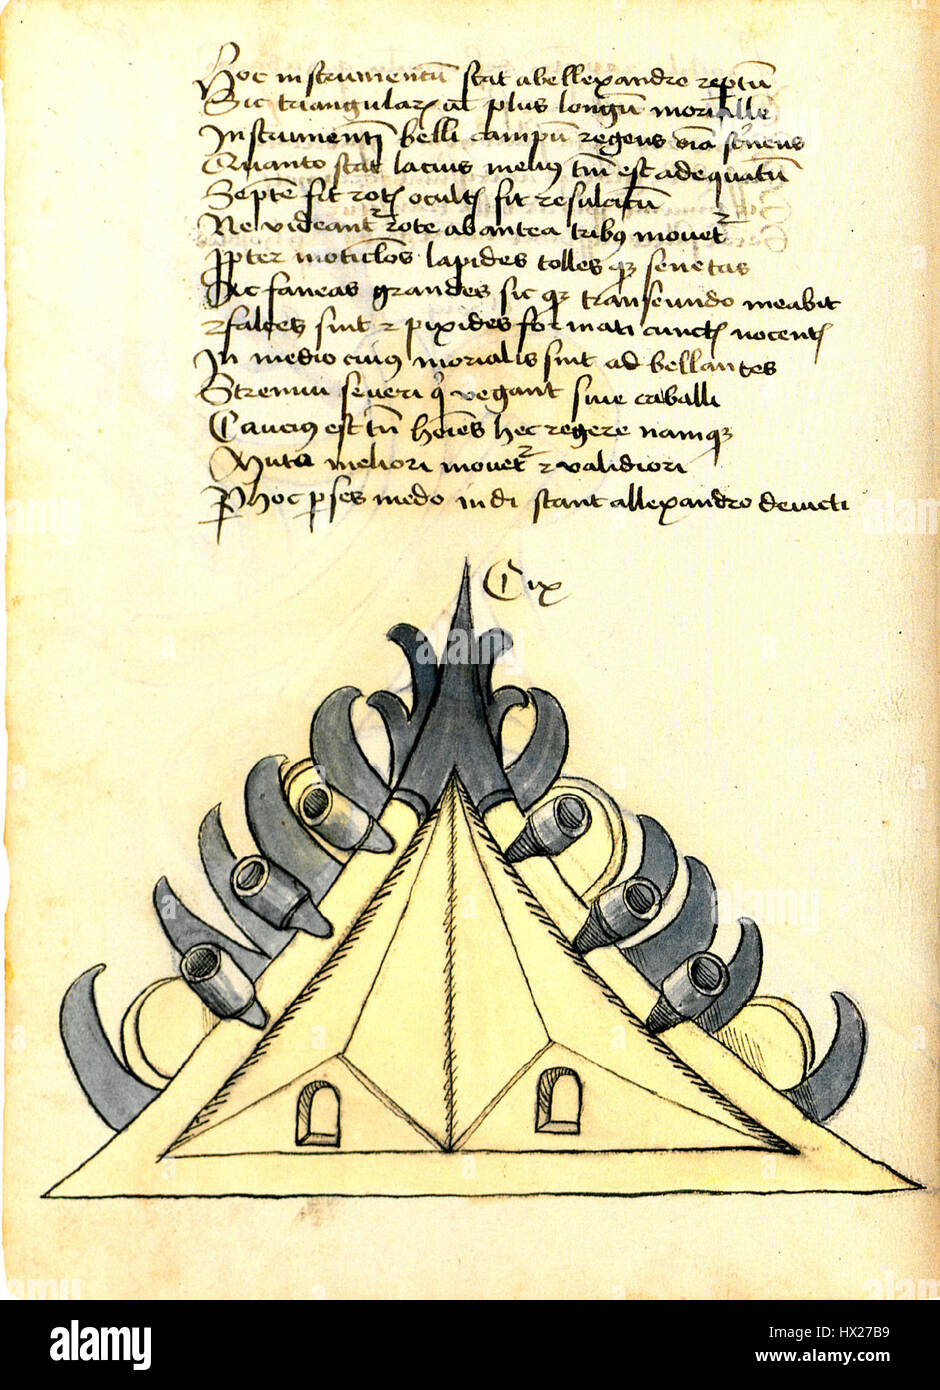 Hoc instrumentū stat abellexandro reptū
Sic triangularꝫ ac plus longū moriale
Instrumentū belli campū regens viā serviens
Quanto stat lacius melius tm̄ est adequatū
Septē fit rotꝭ ocultꝭ fit resulcitū
Ne videant͛ rote ab antea tribꝰ mouet͛
ꝓpter moticlos lapides tolles qꝫ senetas
Sic faneas grandes sic qꝫ transeundo meabit
⁊ falces sint ⁊ pixides formati cunctꝭ nocentꝭ
In medio cuius morialis sint ad bellantes
Strenuu seueri qͥ vegant siue caballi
Caucius est tn̄ hoīes hec regere namqꝫ
Vuta meliori mouet͛ ⁊ validiori
Ꝑ hoc ꝑses medo indi stant allexandro deuicti
C ix
alamy
a
Image ID: HX27B9
www.alamy.com